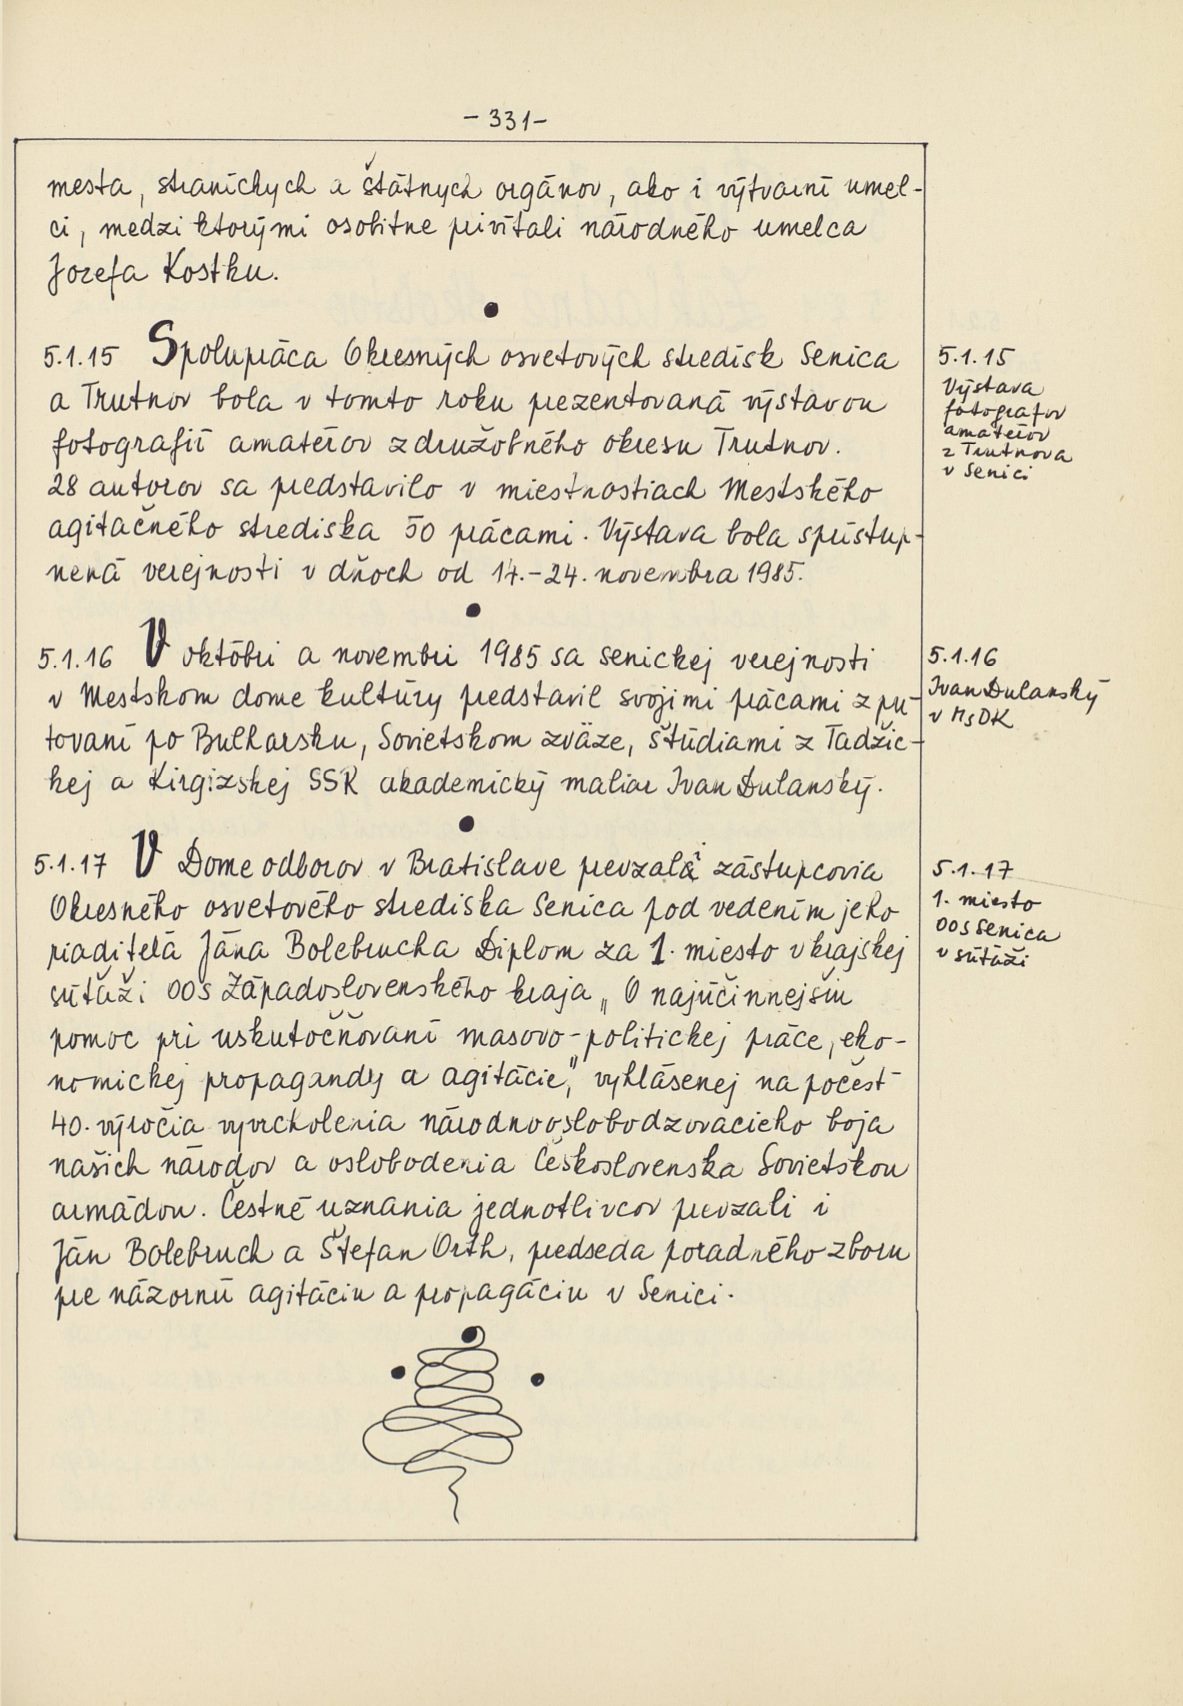 - 331-
mesta, straníckych a štátnych orgánov, ako i výtvarní umel-
ci, medzi ktorými osobitne privítali národného umelca
Jozefa Kostku.
5.1.15 Spolupráca Okresných osvetových stredísk Senica
a Trutnov bola v tomto roku prezentovaná výstavou
fotografií amatérov z družobného okresu Trutnov.
28 autorov sa predstavilo v miestnostiach Mestského
agitačného strediska 50 prácami. Výstava bola sprístup-
nená verejnosti v dňoch od 14.-24. novembra 1985.
5.1.15
Výstava
fotografov
amatérov
z Trutnova
v Senici
5.1.16 V októbri a novembri 1985 sa senickej verejnosti
v Mestskom dome kultúry predstavil svojimi prácami z pu-
tovaní po Bulharsku, Sovietskom zväze, štúdiami z Tadžic-
kej a Kirgizskej SSR akademický maliar Ivan Dulanský.
5.1.16
Ivan Dulanský
v MsDK
5.1.17 V Dome odborov v Bratislave prevzali zástupcovia
Okresného osvetového strediska Senica pod vedením jeho
riaditeľa Jána Bolebrucha Diplom za 1. miesto v krajskej
súťaži OOS Západoslovenského kraja „O najúčinnejšiu
pomoc pri uskutočňovaní masovo-politickej práce, eko-
nomickej propagandy a agitácie," vyhlásenej na počesť
40. výročia vyvrcholenia národnooslobodzovacieho boja
našich národov a oslobodenia Československa Sovietskou
armádou. Čestné uznania jednotlivcov prevzali i
Ján Bolebruch a Štefan Orth, predseda poradného zboru
pre názornú agitáciu a propagáciu v Senici.
5.1.17
1. miesto
OOS Senica
v súťaži